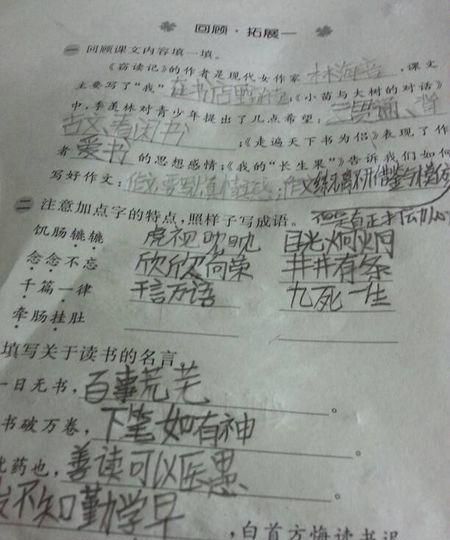 回顾·拓展一
一 回顾课文内容填一填。
《窃读记》的作者是现代女作家林海音,课文
主要写了“我”在书店里窃读;《小苗与大树的对话》
中,季羡林对青少年提出了几点希望:三贯通、背
古文、看闲书;《走遍天下书为侣》表现了作
者爱书的思想感情;《我的“长生果”》告诉我们如何
写好作文:作文要真情实感;
二 注意加点字的特点,照样子写成语。
饥肠辘辘 虎视眈眈 目光炯炯
念念不忘 欣欣向荣 井井有条
千篇一律 千言万语 九死一生
牵肠挂肚
填写关于读书的名言。
一日无书,百事荒芜。
书破万卷,下笔如有神。
药也,善读可以医愚。
发不知勤学早,白首方悔读书迟